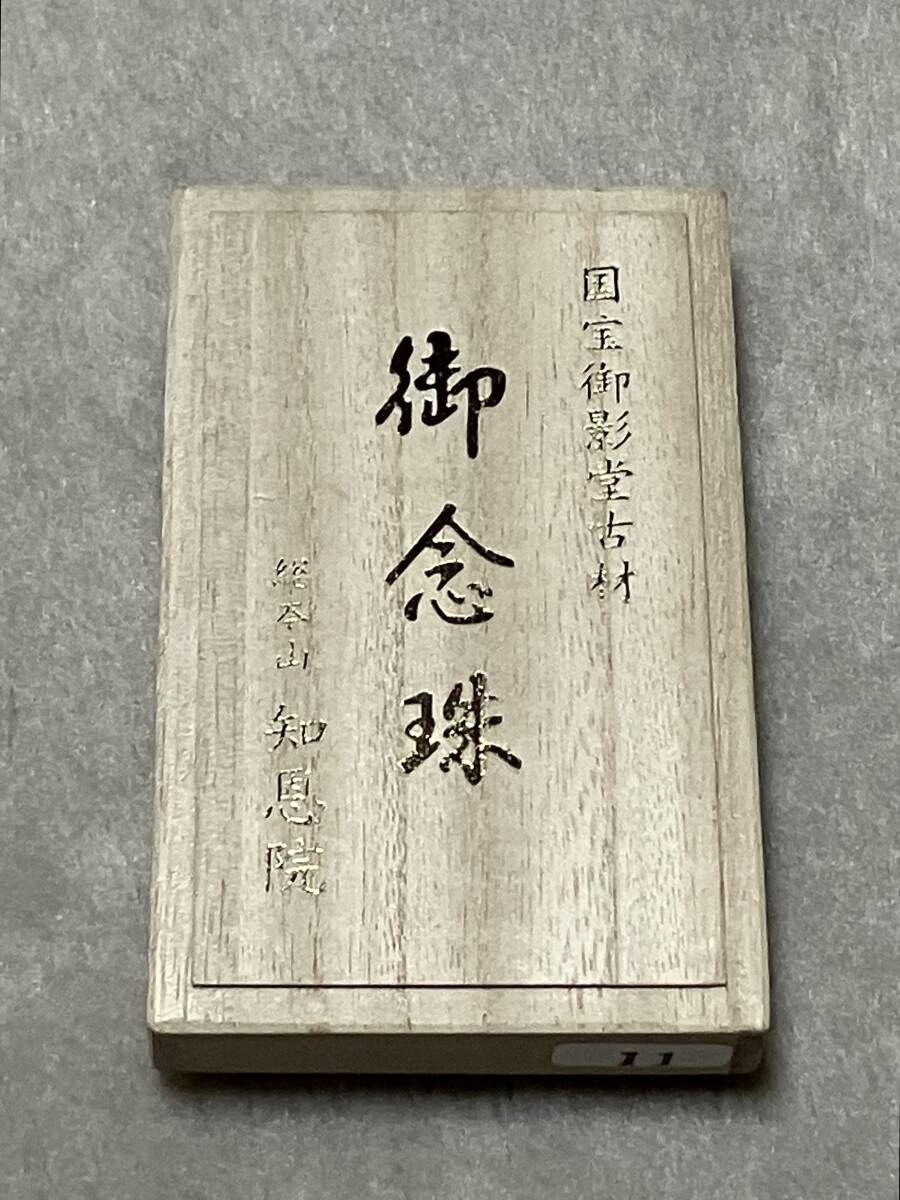 国宝御影堂古材
御念珠
総本山 知恩院
11